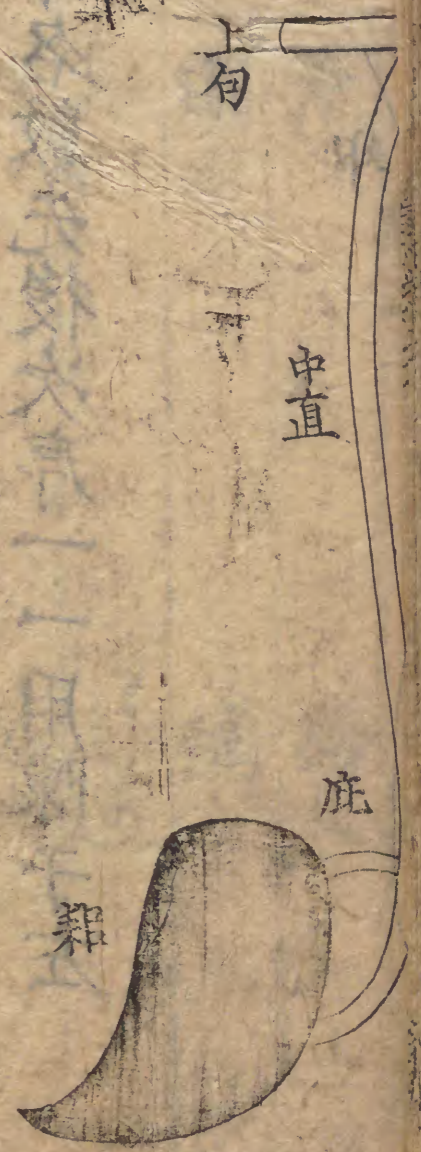 上句
中直
庛
耜